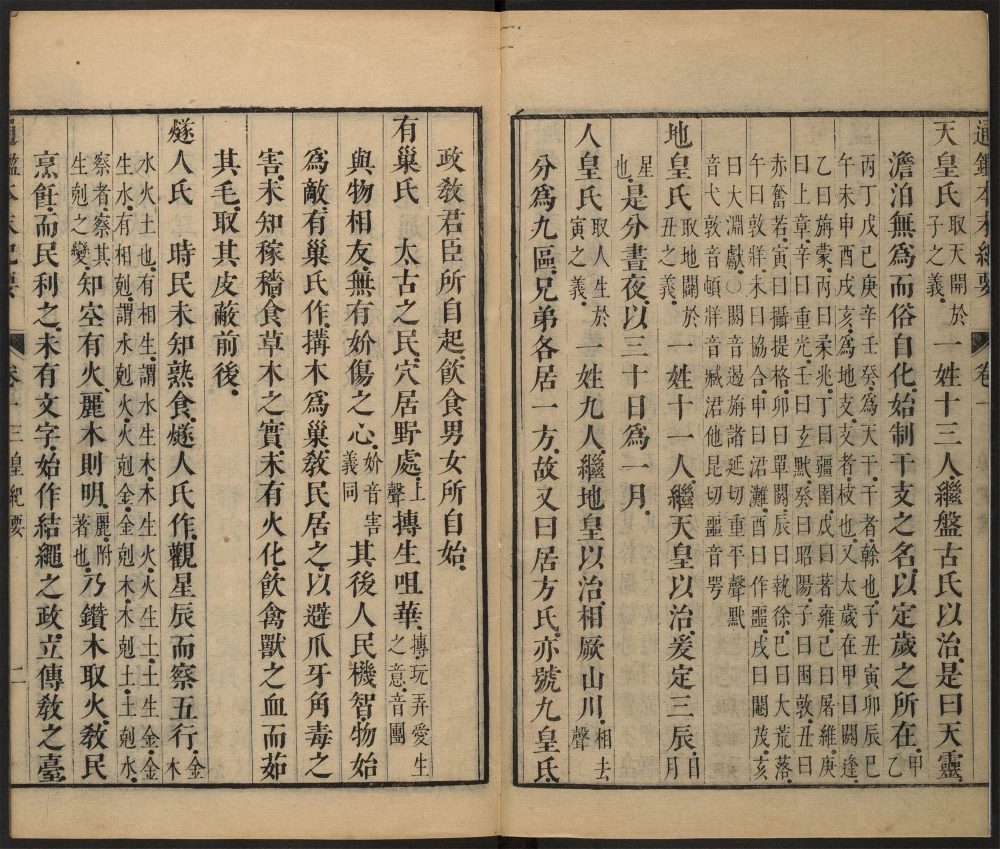 通鑑本末紀要 卷一
天皇氏 取天開於子之義 一姓十三人繼盤古氏以治是曰天靈
澹泊無爲而俗自化始制干支之名以定歲之所在 甲乙
丙丁戊己庚辛壬癸爲天干干者幹也子丑寅卯辰巳
午未申酉戌亥爲地支支者枝也又太歲在甲曰閼逢
乙曰旃蒙丙曰柔兆丁曰疆圉戊曰著雍己曰屠維庚
曰上章辛曰重光壬曰玄黓癸曰昭陽子曰困敦丑曰
赤奮若寅曰攝提格卯曰單閼辰曰執徐巳曰大荒落
午曰敦牂未曰協合申曰涒灘酉曰作噩戌曰閹茂亥
曰大淵獻〇閼音遏旃諸延切重平聲黓
音弋敦音頓牂音臧涒他昆切噩音咢
地皇氏 取地闢於丑之義 一姓十一人繼天皇以治爰定三辰 日月
星也 是分晝夜以三十日爲一月
人皇氏 取人生於寅之義 一姓九人繼地皇以治相厥山川 相去聲
分爲九區兄弟各居一方故又曰居方氏亦號九皇氏
政敎君臣所自起飮食男女所自始
有巢氏 太古之民穴居野處 上聲 摶生咀華 摶玩弄愛生之意音團
與物相友無有妎傷之心 妎音害義同 其後人民機智物始
爲敵有巢氏作搆木爲巢敎民居之以避爪牙角毒之
害未知稼穡食草木之實未有火化飮禽獸之血而茹
其毛取其皮蔽前後
燧人氏 時民未知熟食燧人氏作觀星辰而察五行 金木
水火土也有相生謂水生木木生火火生土土生金金
生水有相剋謂水剋火火剋金金剋木木剋土土剋水
察者察其生剋之變 知空有火麗木則明 麗附著也 乃鑽木取火敎民
烹飪而民利之未有文字始作結繩之政立傳敎之臺
通鑑本末紀要 卷一 三皇紀要 二